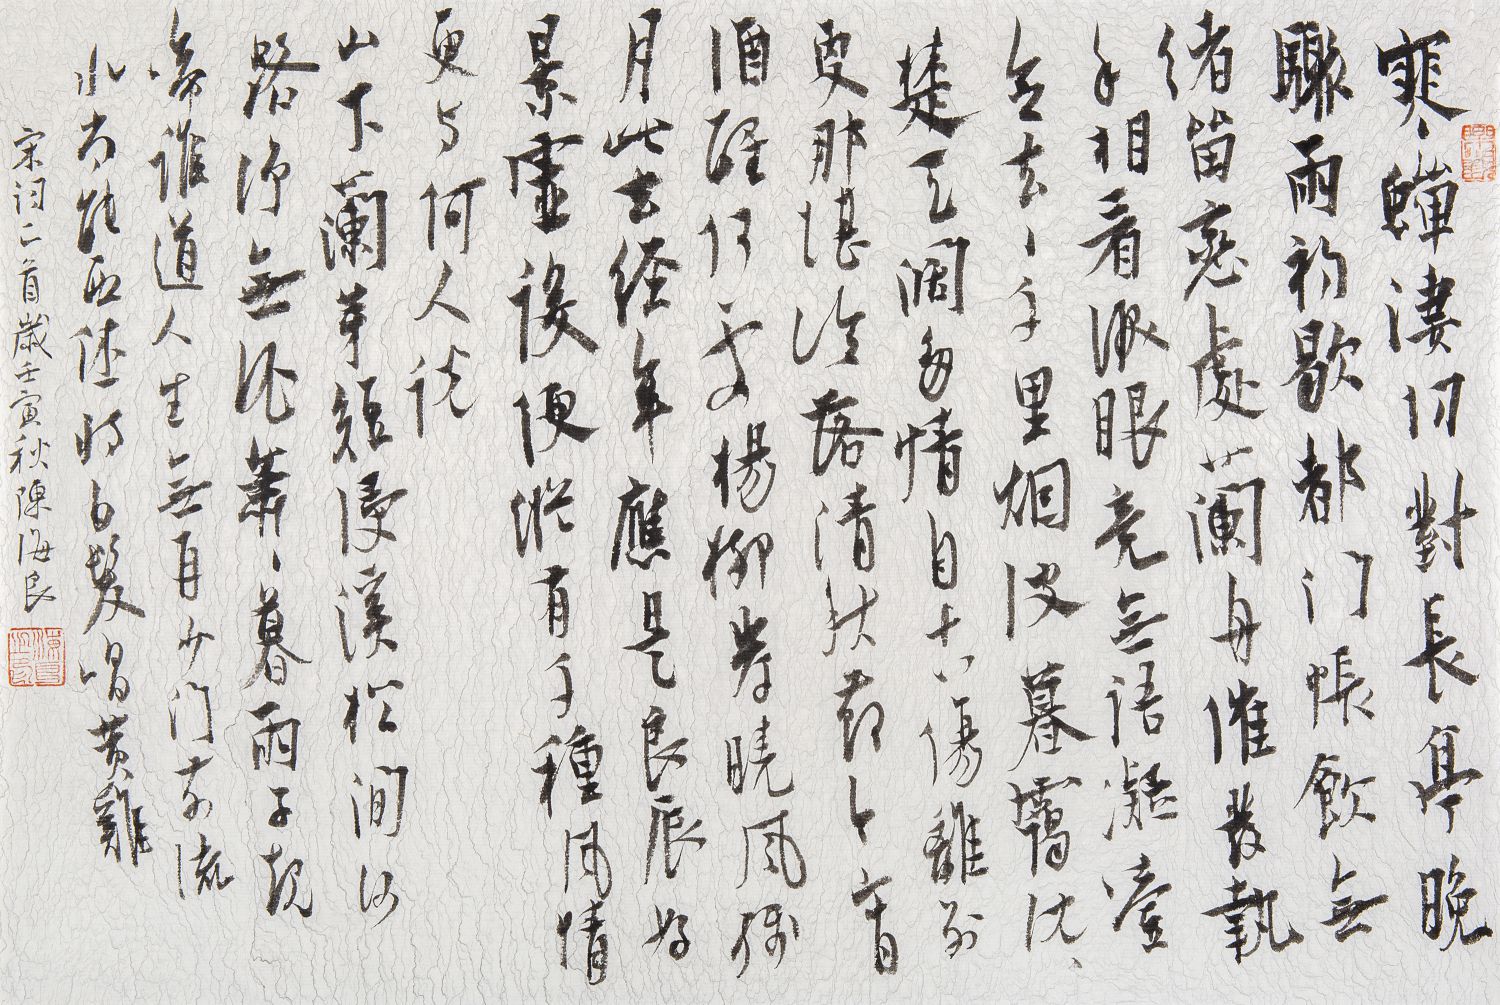 寒〻蟬淒切對長亭晚
驟雨初歇都门帳飲無
緒留戀處蘭舟催發執
手相看淚眼竟無語凝噎
念去〻千里烟波暮靄沈〻
楚天闊多情自古傷離別
更那堪冷落清秋節今宵
酒醒何處楊柳岸曉風殘
月此去經年應是良辰好
景虛設便縱有千種風情
更与何人說
山下蘭芽短浸溪松間沙
路淨無泥蕭〻暮雨子規
啼誰道人生無再少门前流
水尚能西休將白髮唱黃雞
宋詞二首歲壬寅秋陳海良